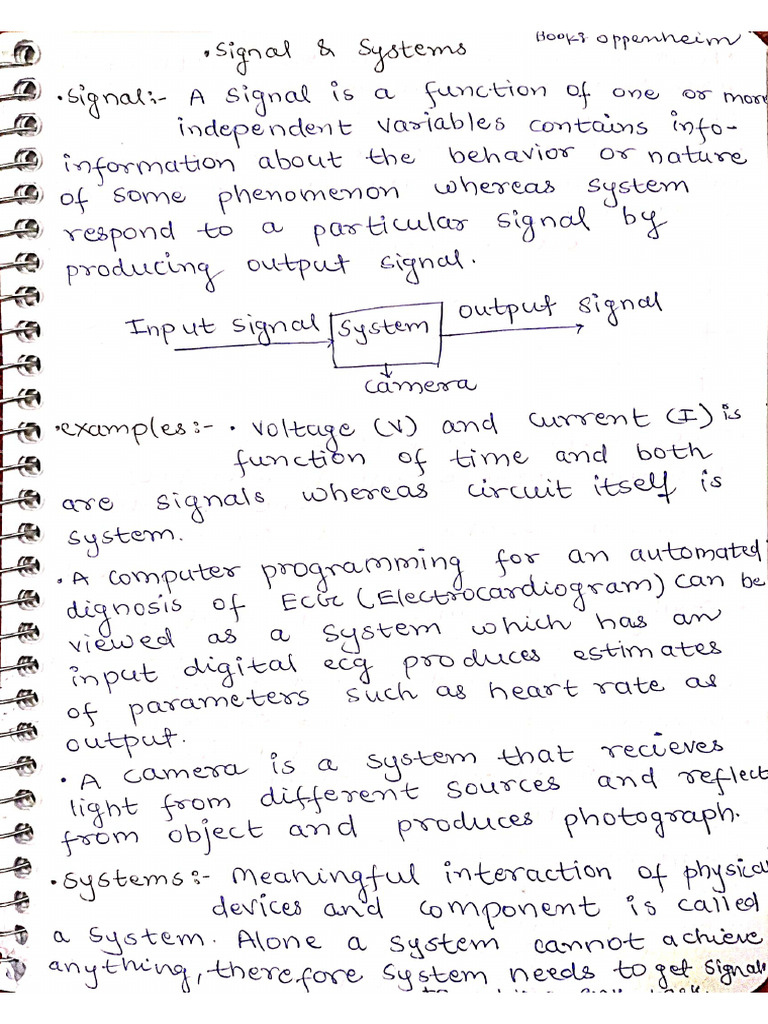 • Signal & Systems
Books Oppenheim
• Signal:- A signal is a function of one or more
independent variables contains info-
information about the behavior or nature
of some phenomenon whereas system
respond to a particular signal by
producing output signal.
Input signal System output signal
camera
• examples:- • voltage (V) and current (I) is
function of time and both
are signals whereas circuit itself is
system.
• A computer programming for an automated
dignosis of ECG (Electrocardiogram) can be
viewed as a system which has an
input digital ecg produces estimates
of parameters such as heart rate as
output.
• A camera is a system that recieves
light from different sources and reflect
from object and produces photograph.
• Systems:- Meaningful interaction of physical
devices and component is called
a system. Alone a system cannot achieve
anything, therefore system needs to get signal